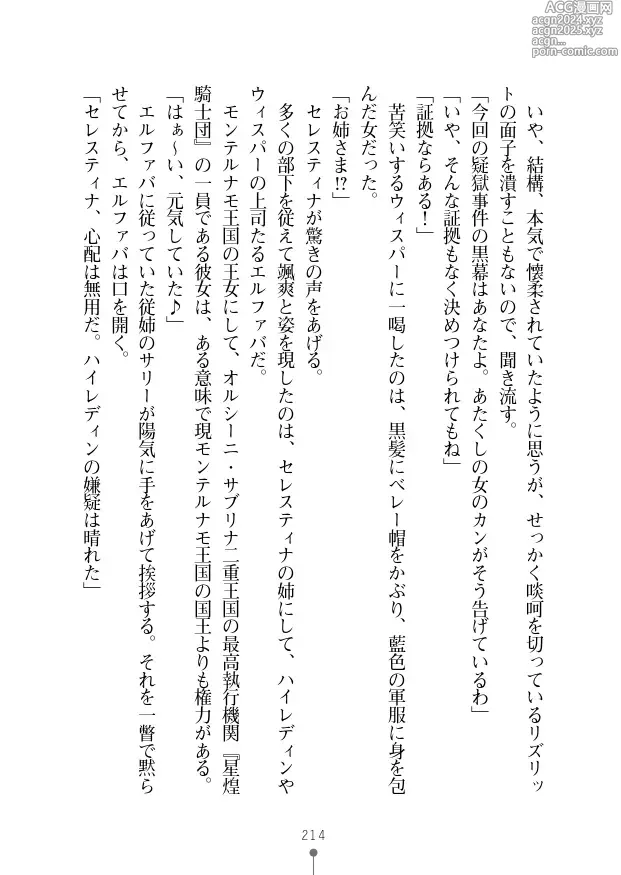 ACG漫画网
acgn2024.xyz
acgn2025.xyz
acgn...
porn-comic.com
いや、結構、本気で懐柔されていたように思うが、せっかく啖呵を切っているリズリッ
トの面子を潰すこともないので、聞き流す。
「今回の疑獄事件の黒幕はあなたよ。あたくしの女のカンがそう告げているわ」
「いや、そんな証拠もなく決めつけられてもね」
「証拠ならある！」
苦笑いするウィスパーに一喝したのは、黒髪にベレー帽をかぶり、藍色の軍服に身を包
んだ女だった。
「お姉さま!?」
セレスティナが驚きの声をあげる。
多くの部下を従えて颯爽と姿を現したのは、セレスティナの姉にして、ハイレディンや
ウィスパーの上司たるエルファバだ。
モンテルナモ王国の王女にして、オルシーニ・サブリナ二重王国の最高執行機関『星煌
騎士団』の一員である彼女は、ある意味で現モンテルナモ王国の国王よりも権力がある。
「はぁ～い、元気していた♪」
エルファバに従っていた従姉のサリーが陽気に手をあげて挨拶する。それを一瞥で黙ら
せてから、エルファバは口を開く。
「セレスティナ、心配は無用だ。ハイレディンの嫌疑は晴れた」
214